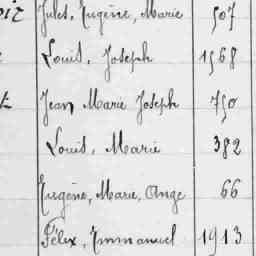 Jules, Eugène, Marie 507
Louis, Joseph 1568
Jean Marie Joseph 750
Louis, Marie 382
Eugène, Marie, Ange 66
Félix, Emmanuel 1913